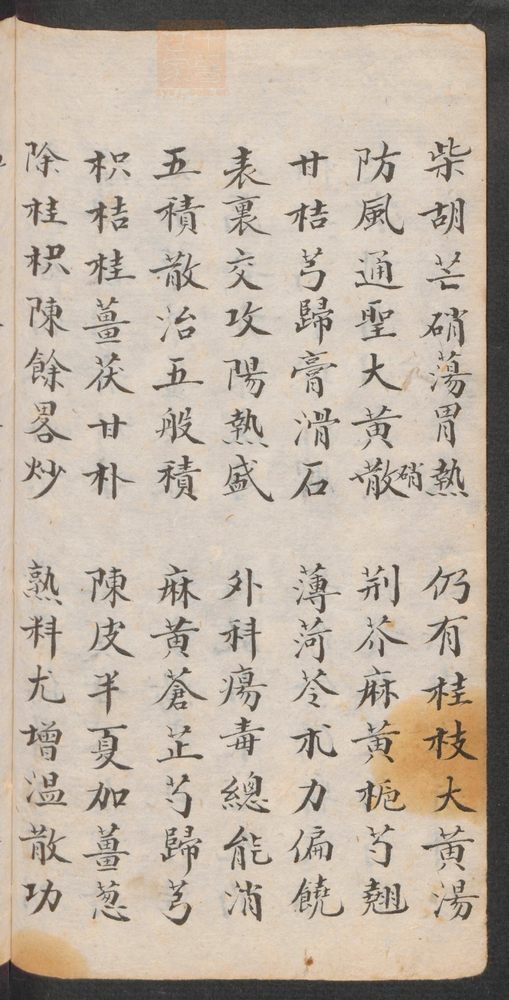 柴胡芒硝蕩胃熱　仍有桂枝大黃湯
防風通聖大黃散硝　荆芥麻黃梔芍翹
甘桔芎歸膏滑石　薄荷芩朮力偏饒
表裏交攻陽熱盛　外科瘍毒總能消
五積散治五般積　麻黃蒼芷芍歸芎
枳桔桂薑茯甘朴　陳皮半夏加薑葱
除桂枳陳餘畧炒　熟料尤增溫散功